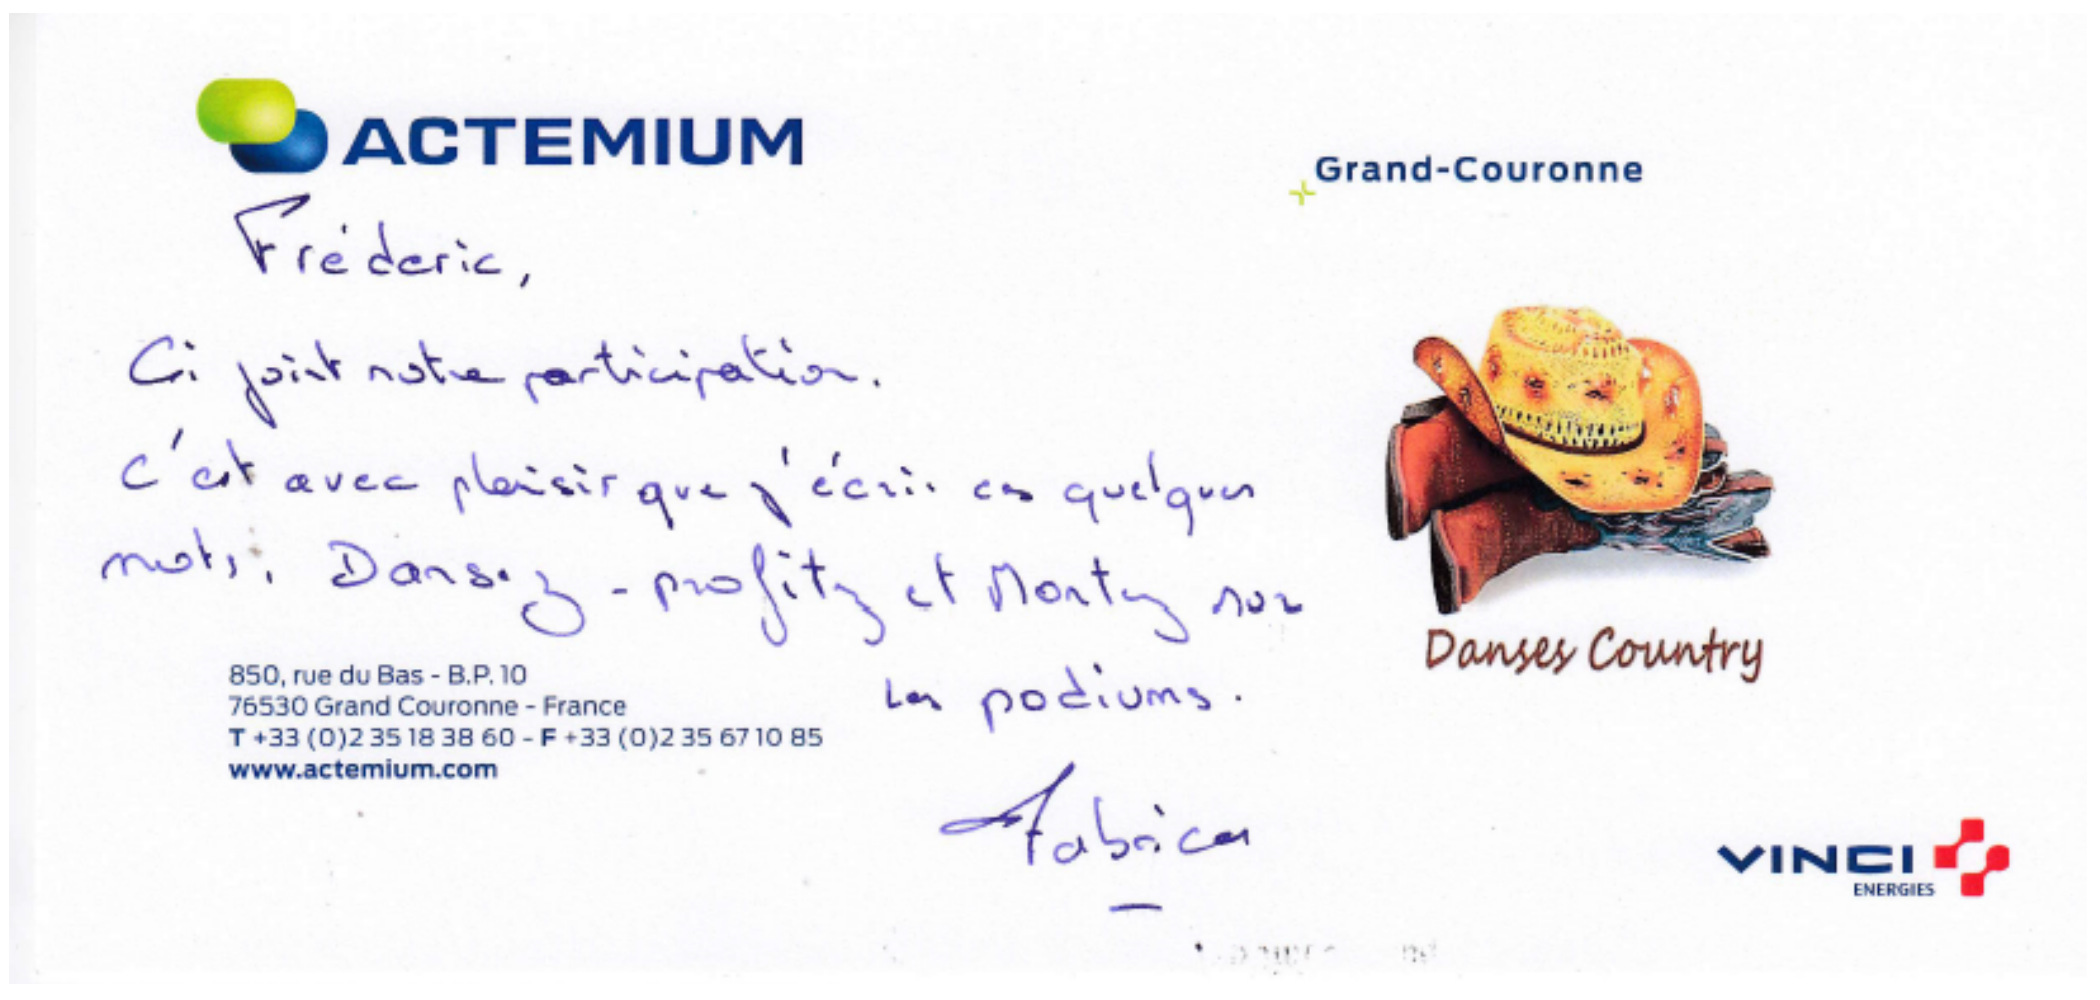 ACTEMIUM
Grand-Couronne
Fréderic,
Ci joint notre participation.
C'est avec plaisir que j'écris ces quelques
mots. Dansez - profitez et Montez sur
les podiums.
Danses Country
850, rue du Bas - B.P. 10
76530 Grand Couronne - France
T +33 (0)2 35 18 38 60 - F +33 (0)2 35 67 10 85
www.actemium.com
Fabrice
VINCI
ENERGIES